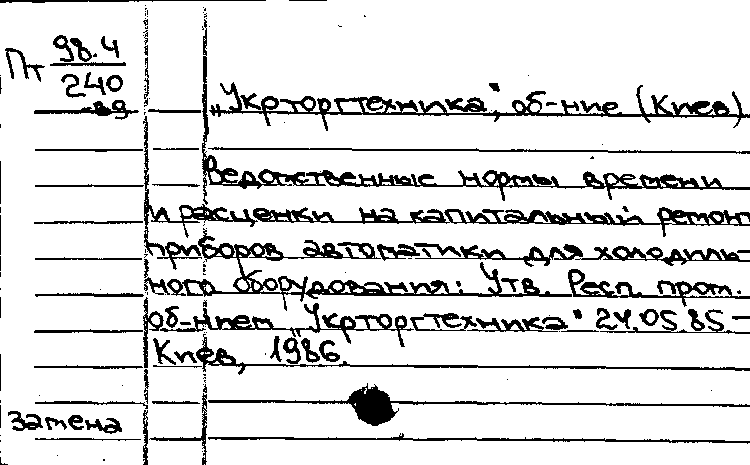 Пт 98.4
240
-89
„Укрторгтехника", об-ние (Киев)
Ведомственные нормы времени
и расценки на капитальный ремонт
приборов автоматики для холодиль-
ного оборудования: Утв. Респ. пром.
об-нием „Укрторгтехника" 24.05.85 –
Киев, 1986.
Замена